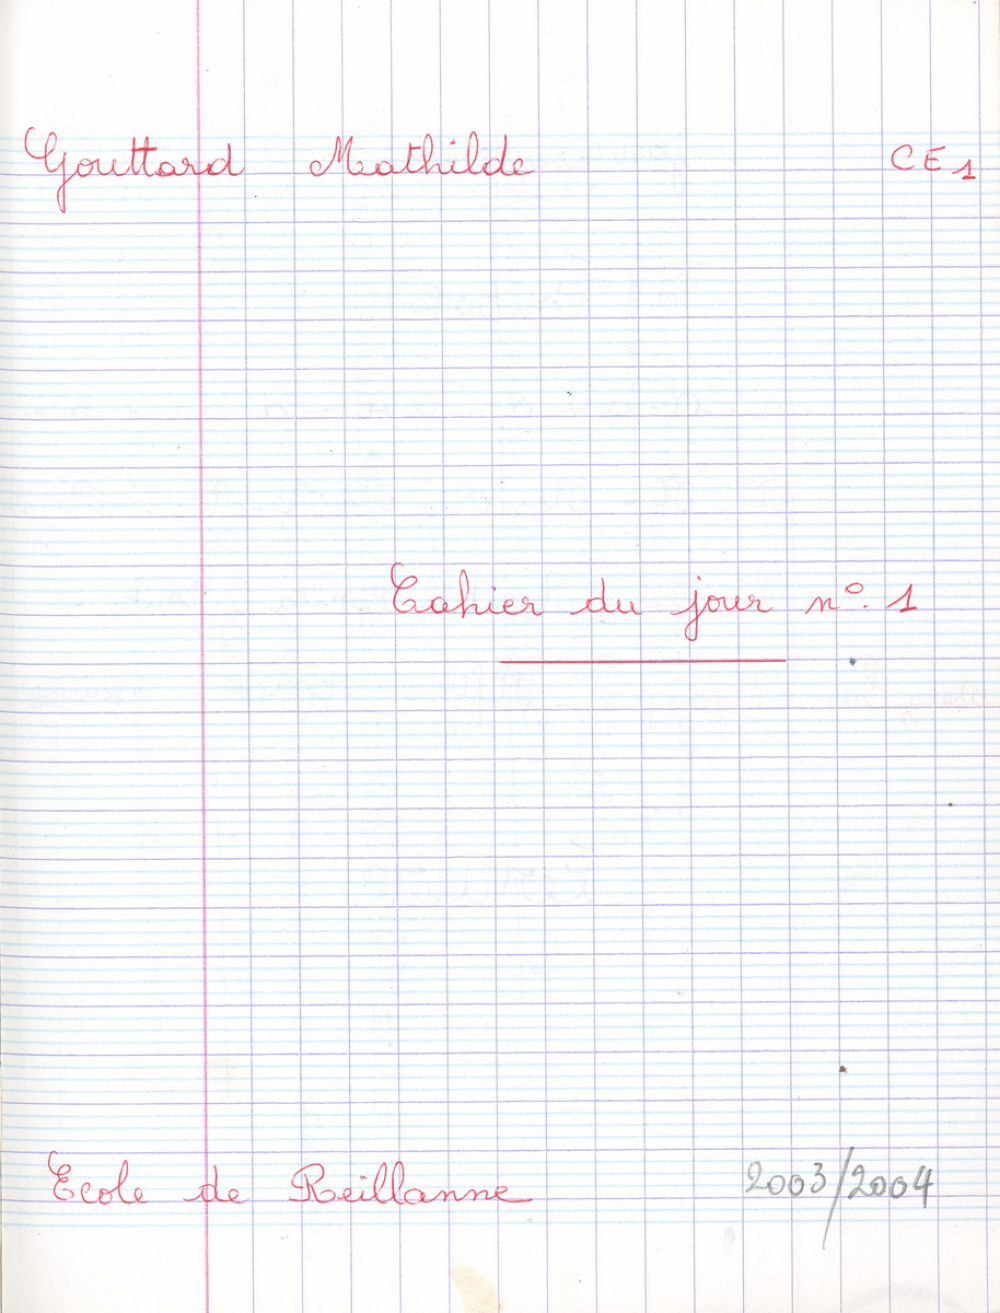 Gouttard Mathilde CE1
Cahier du jour n°. 1
Ecole de Reillanne 2003/2004